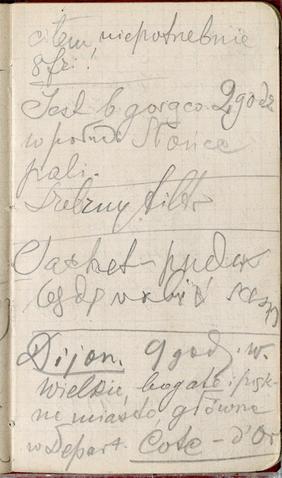 citem, niepotrzebnie
8 fr.!
Jest b. gorąco. 2 godz
w połud. Słońce
pali.
Srebrny
Sachet – puder
Dijon. 9 godz. w.
Wielkie, bogate i pięk-
ne miasto, główne
w Depart. Cote-d'Or